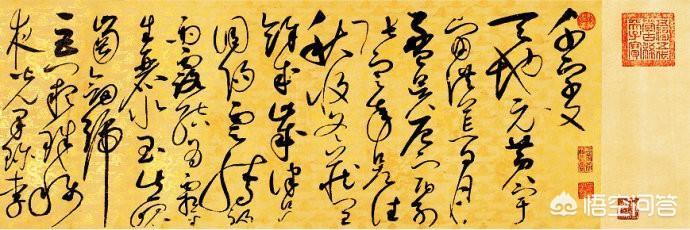 千字文
天地元黃宇
宙洪荒日月
盈昃辰宿列
張寒來暑往
秋收冬藏閏
餘成歲律呂
調陽雲騰致
雨露結為霜金
生麗水玉出崑
岡劍號
巨闕珠稱
夜光果珍李
悟空问答